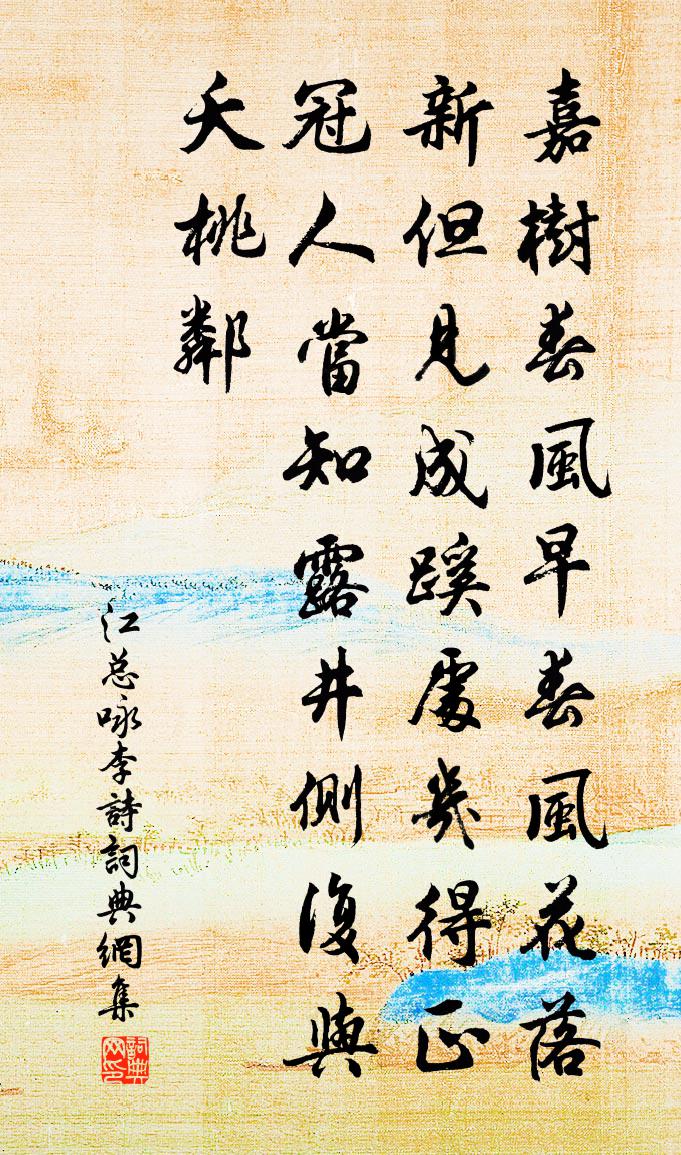 嘉樹春風早春風花落
新但見成蹊處幾得正
冠人當知露井側復與
夭桃鄰
江总咏李詩詞典網集
詞典网印